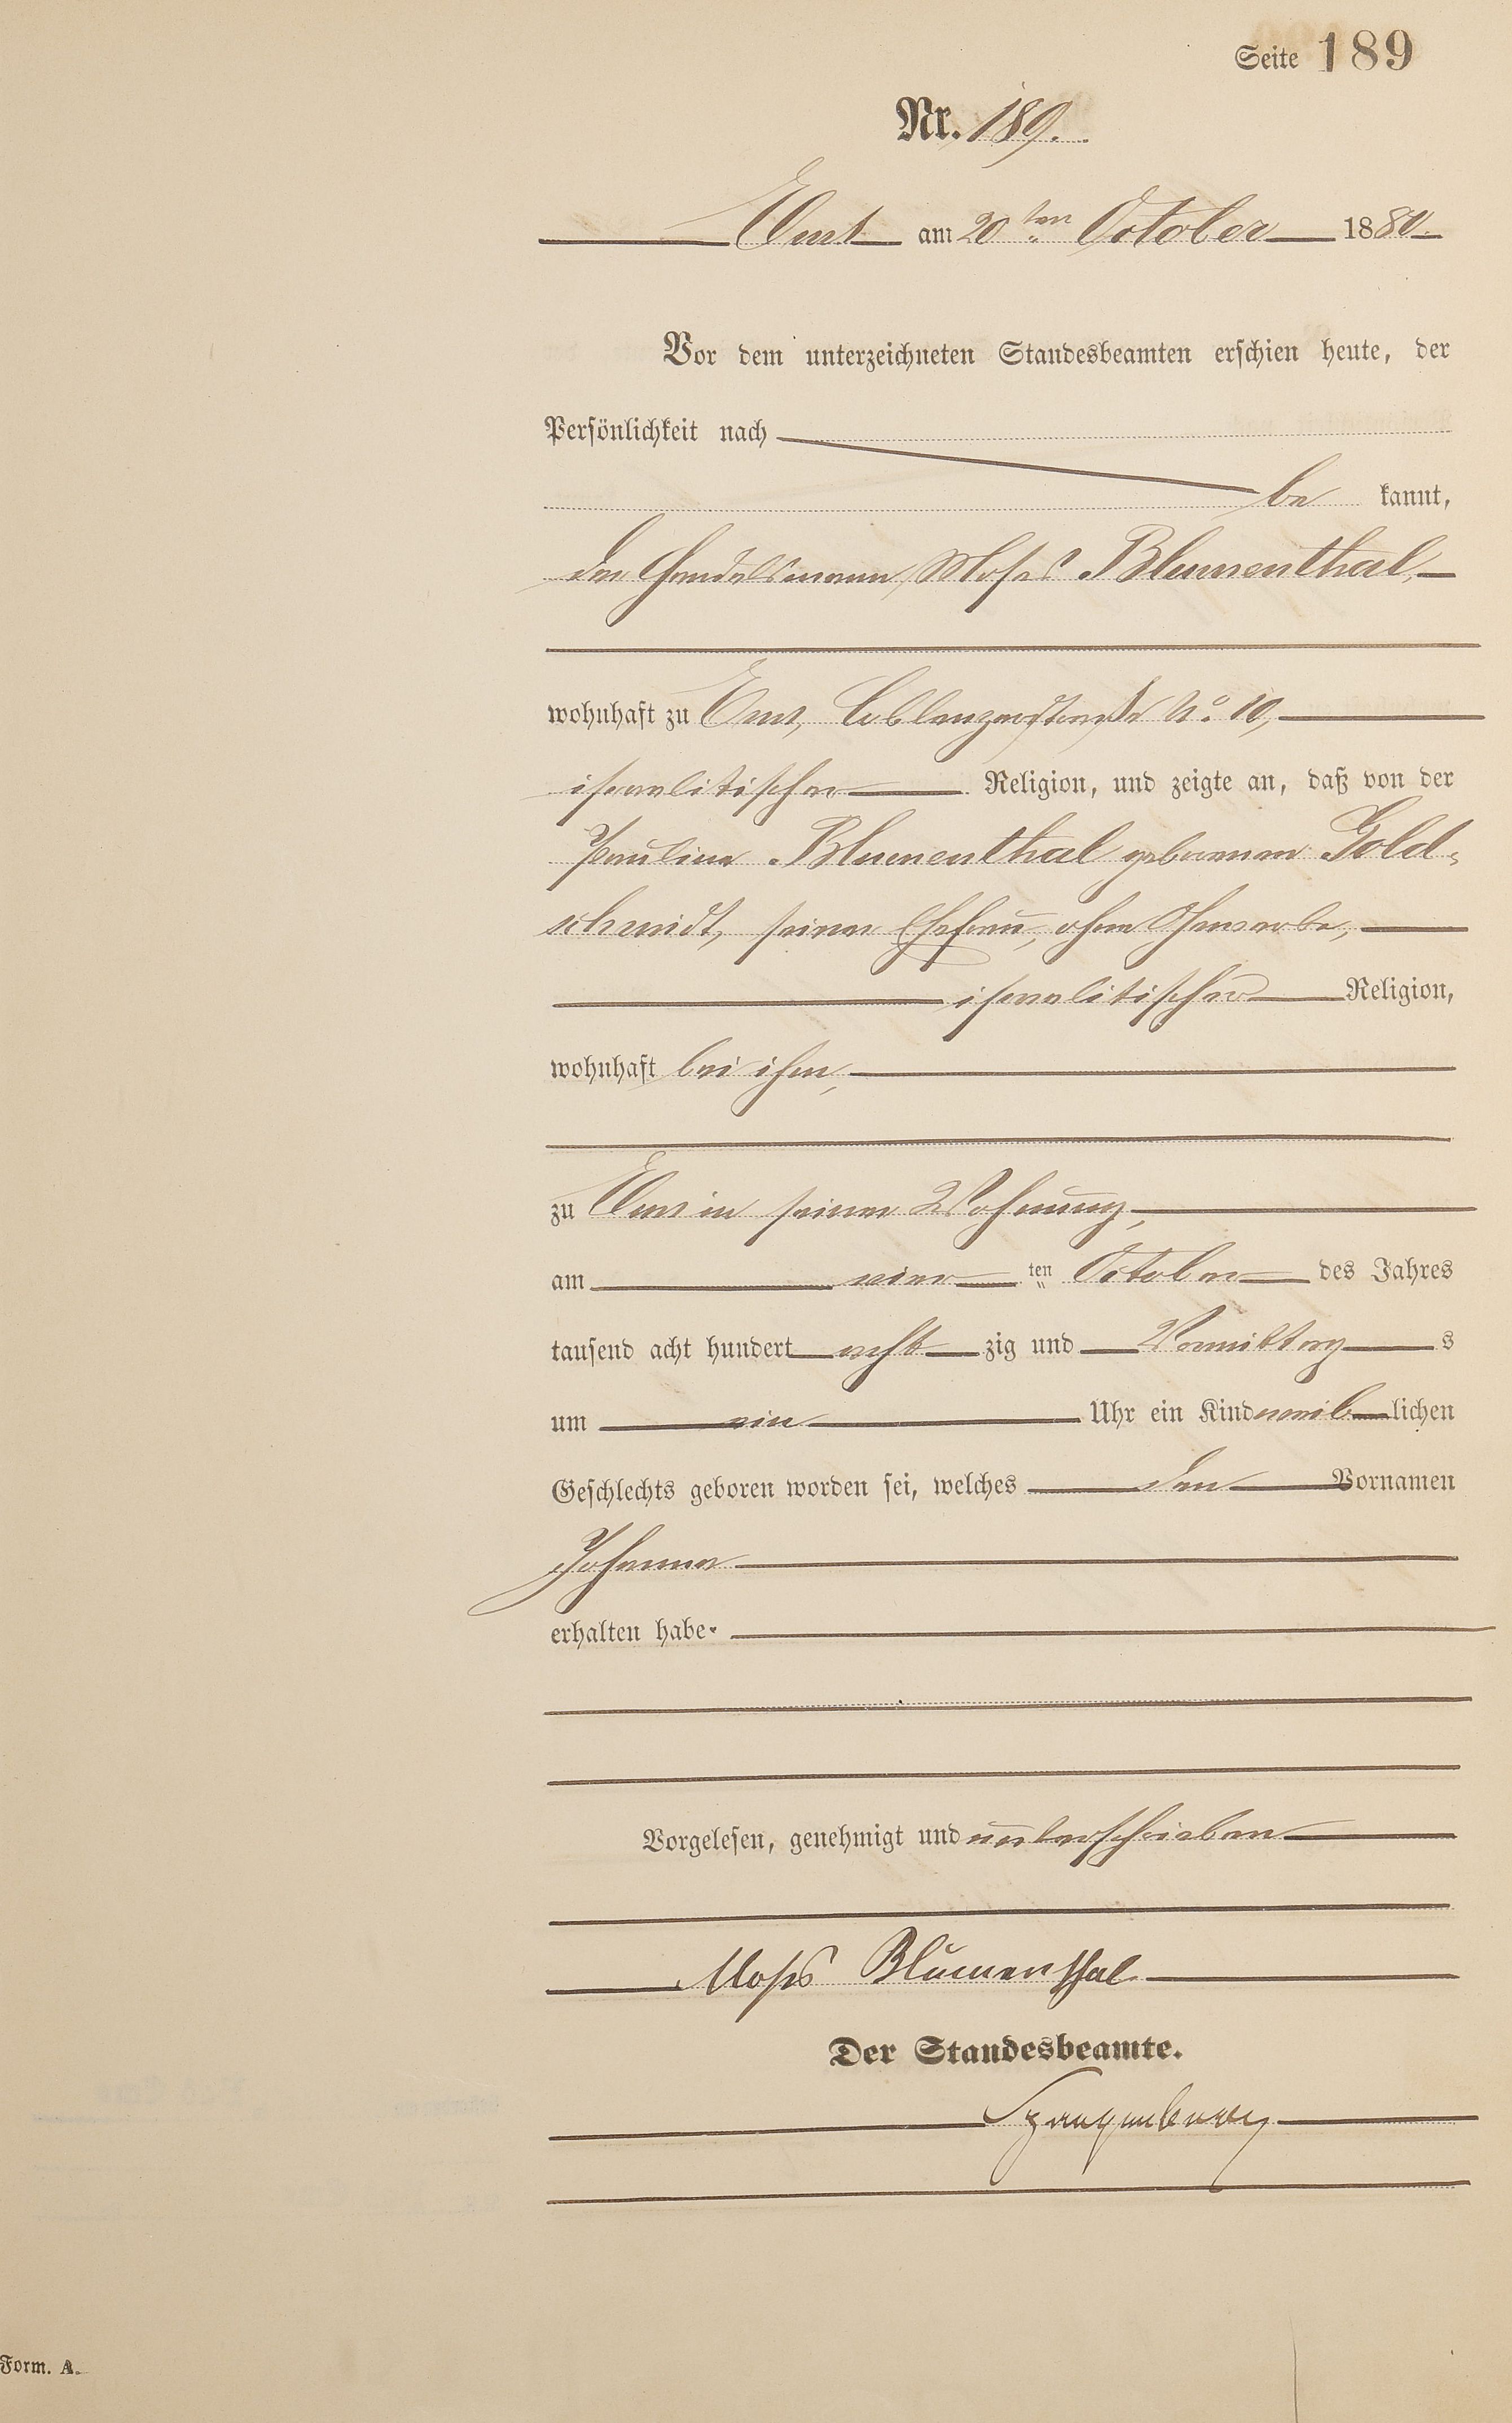 Seite 189
Nr. 189.
Ems am 20ten October 1880.
Vor dem unterzeichneten Standesbeamten erschien heute, der
Persönlichkeit nach
be kannt,
der Handelsmann Moses Blumenthal,
wohnhaft zu Ems, Coblenzerstraße No. 10,
israelitischer Religion, und zeigte an, daß von der
Pauline Blumenthal geborenen Gold-
schmidt, seiner Ehefrau, ohne Gewerbe,
israelitischer Religion,
wohnhaft bei ihm,
zu Ems in seiner Wohnung,
am vier ten October des Jahres
tausend acht hundert acht zig und Vormittag s
um ein Uhr ein Kind weib lichen
Geschlechts geboren worden sei, welches den Vornamen
Johanna
erhalten habe.
Vorgelesen, genehmigt und unterschrieben
Moses Blumenthal
Der Standesbeamte.
Spangenberg
Form. A.